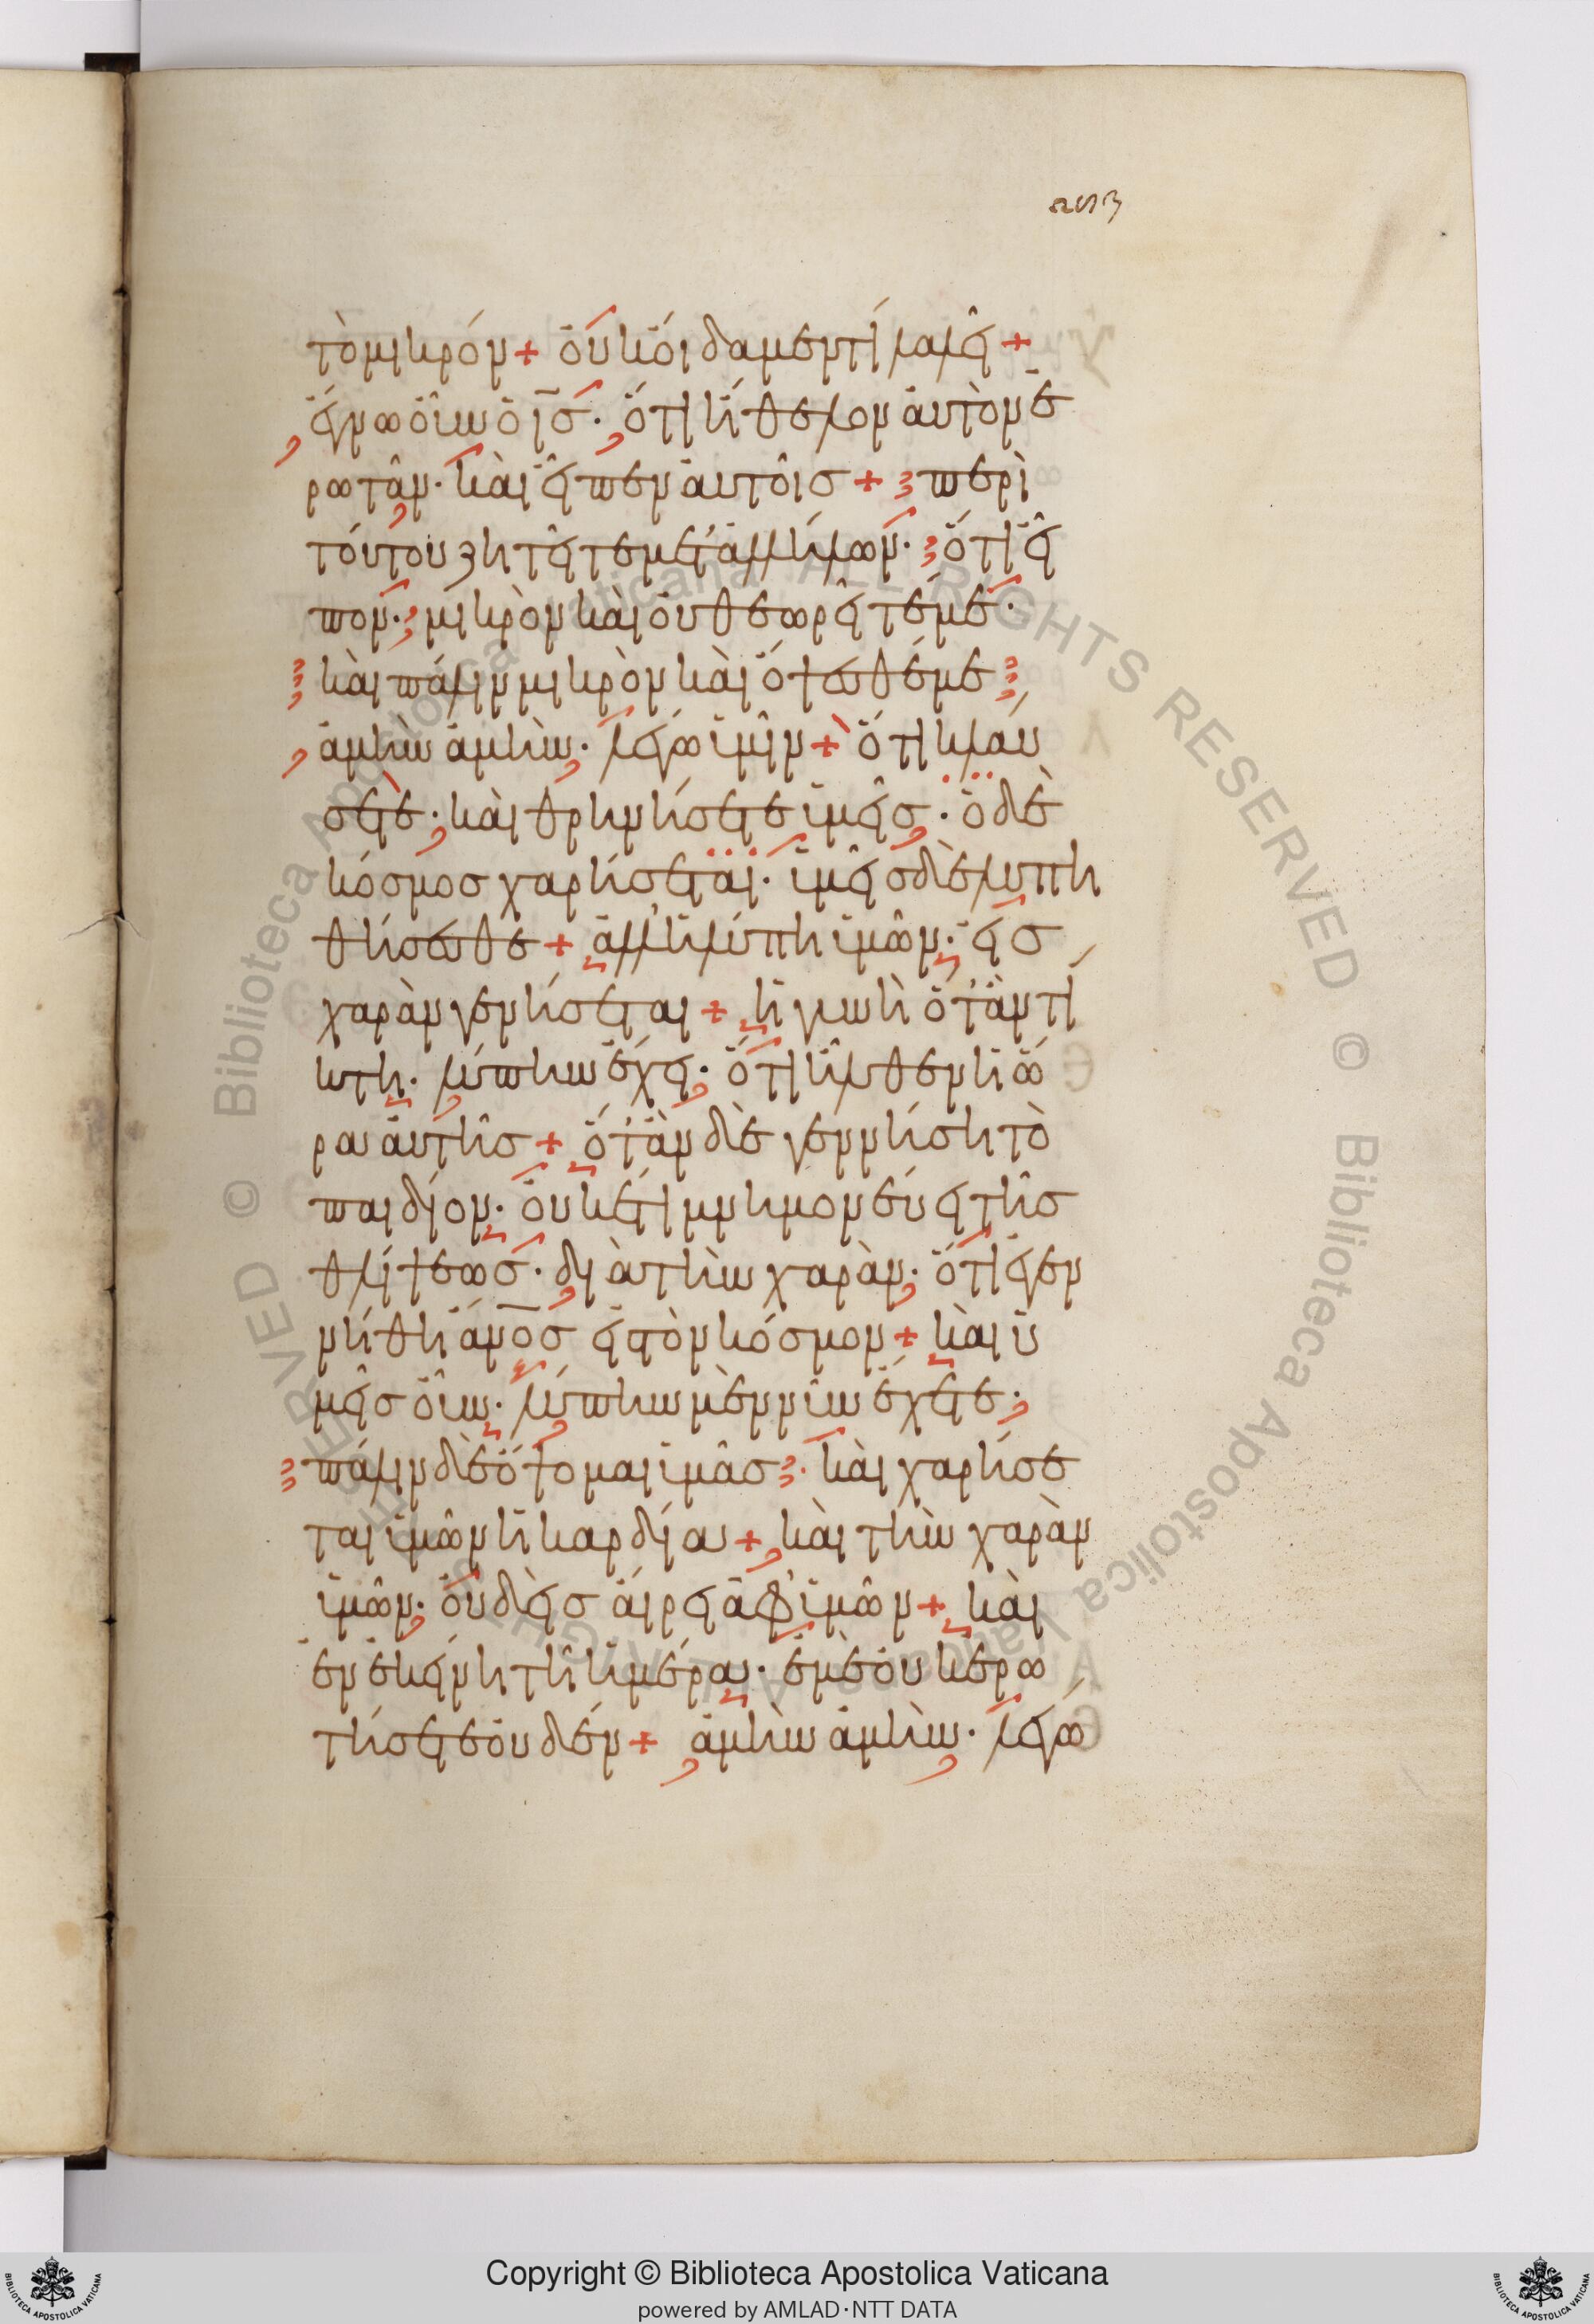 τὸ μικρόν + οὐκ οἴδαμεν τί λαλεῖ +
ἔγνω οὖν ὁ ι̅ς̅· ὅτι ἤθελον αὐτὸν ἐ
ρωτᾶν· καὶ εἶπεν αὐτοῖς + περὶ
τούτου ζητεῖτε μετ' ἀλλήλων· ὅτι εἶ
πον· μικρὸν καὶ οὐ θεωρεῖτέ με·
καὶ πάλιν μικρὸν καὶ ὄψεσθέ με
ἀμὴν ἀμὴν· λέγω ὑμῖν + ὅτι κλαύ
σετε· καὶ θρηνήσετε ὑμεῖς· ὁ δὲ
κόσμος χαρήσεται· ὑμεῖς δὲ λυπη
θήσεσθε + ἀλλ' ἡ λύπη ὑμῶν· εἰς
χαρὰν γενήσεται + ἡ γυνὴ ὅτ' ἂν τί
κτη· λύπην ἔχει· ὅτι ἦλθεν ἡ ὥ
ρα αὐτῆς + ὅτ' ἂν δὲ γεννήση τὸ
παιδίον· οὐκέτι μνημονεύει τῆς
θλίψεως· διὰ τὴν χαρὰν· ὅτι ἐγεν
νήθη α̅ν̅ο̅ς̅ εἰς τὸν κόσμον + καὶ ὑ
μεῖς οὖν· λύπην μὲν νῦν ἔχετε·
πάλιν δὲ ὄψομαι ὑμᾶς· καὶ χαρήσε
ται ὑμῶν ἡ καρδία + καὶ τὴν χαρὰν
ὑμῶν· οὐδεὶς αἴρει ἀφ' ὑμῶν + καὶ
ἐν ἐκείνη τῆ ἡμέρα· ἐμὲ οὐκ ἐρω
τήσετε οὐδέν + ἀμὴν ἀμὴν· λέγω
Copyright © Biblioteca Apostolica Vaticana
powered by AMLAD·NTT DATA